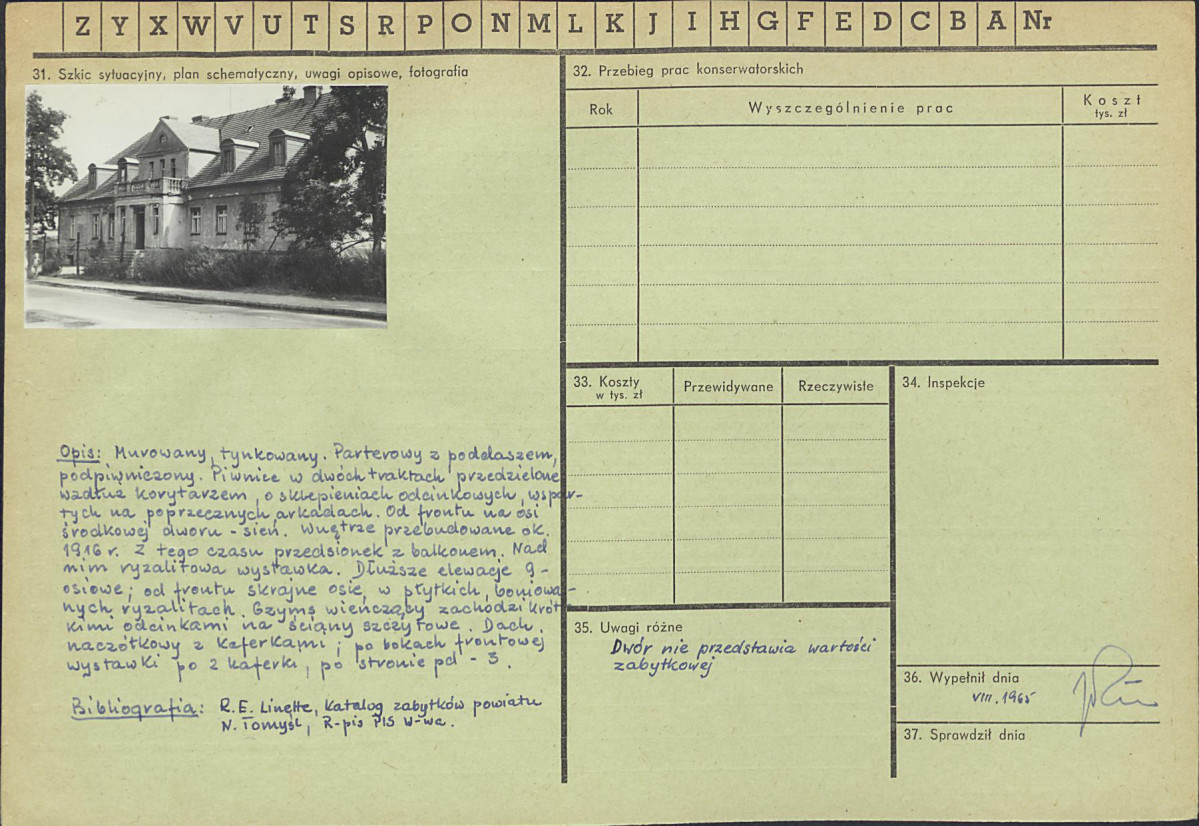 Z Y X W V U T S R P O N M L K J I H G F E D C B A Nr
31. Szkic sytuacyjny, plan schematyczny, uwagi opisowe, fotografia
Opis: Murowany, tynkowany. Parterowy z poddaszem,
podpiwniczony. Piwnice w dwóch traktach przedzielone
wzdłuż korytarzem, o sklepieniach odcinkowych, wspar-
tych na poprzecznych arkadach. Od frontu na osi
środkowej dworu - sień. Wnętrze przebudowane ok.
1916 r. Z tego czasu przedsionek z balkonem. Nad
nim ryzalitowa wystawka. Dłuższe elewacje 9-
osiowe; od frontu skrajne osie, w płytkich, boniowa-
nych ryzalitach. Gzyms wieńczący zachodzi krót-
kimi odcinkami na ściany szczytowe. Dach
naczółkowy z kaferkami; po bokach frontowej
wystawki po 2 kaferki, po stronie pd - 3.
Bibliografia: R.E. Linette, Katalog zabytków powiatu
N. Tomyśl, R-pis PIS W-wa.
32. Przebieg prac konserwatorskich
Rok
Wyszczególnienie prac
Koszt
tys. zł
33. Koszty
w tys. zł
Przewidywane
Rzeczywiste
34. Inspekcje
35. Uwagi różne
Dwór nie przedstawia wartości
zabytkowej
36. Wypełnił dnia
VIII. 1965
37. Sprawdził dnia